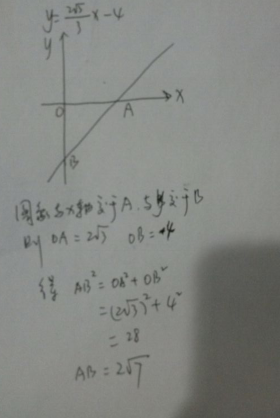 y=2√3/3 x-4
y
O
A
x
B
图象与x轴交于A,与y交于B
则 OA=2√3 OB=4
得 AB²=OA²+OB²
=(2√3)²+4²
=28
AB=2√7